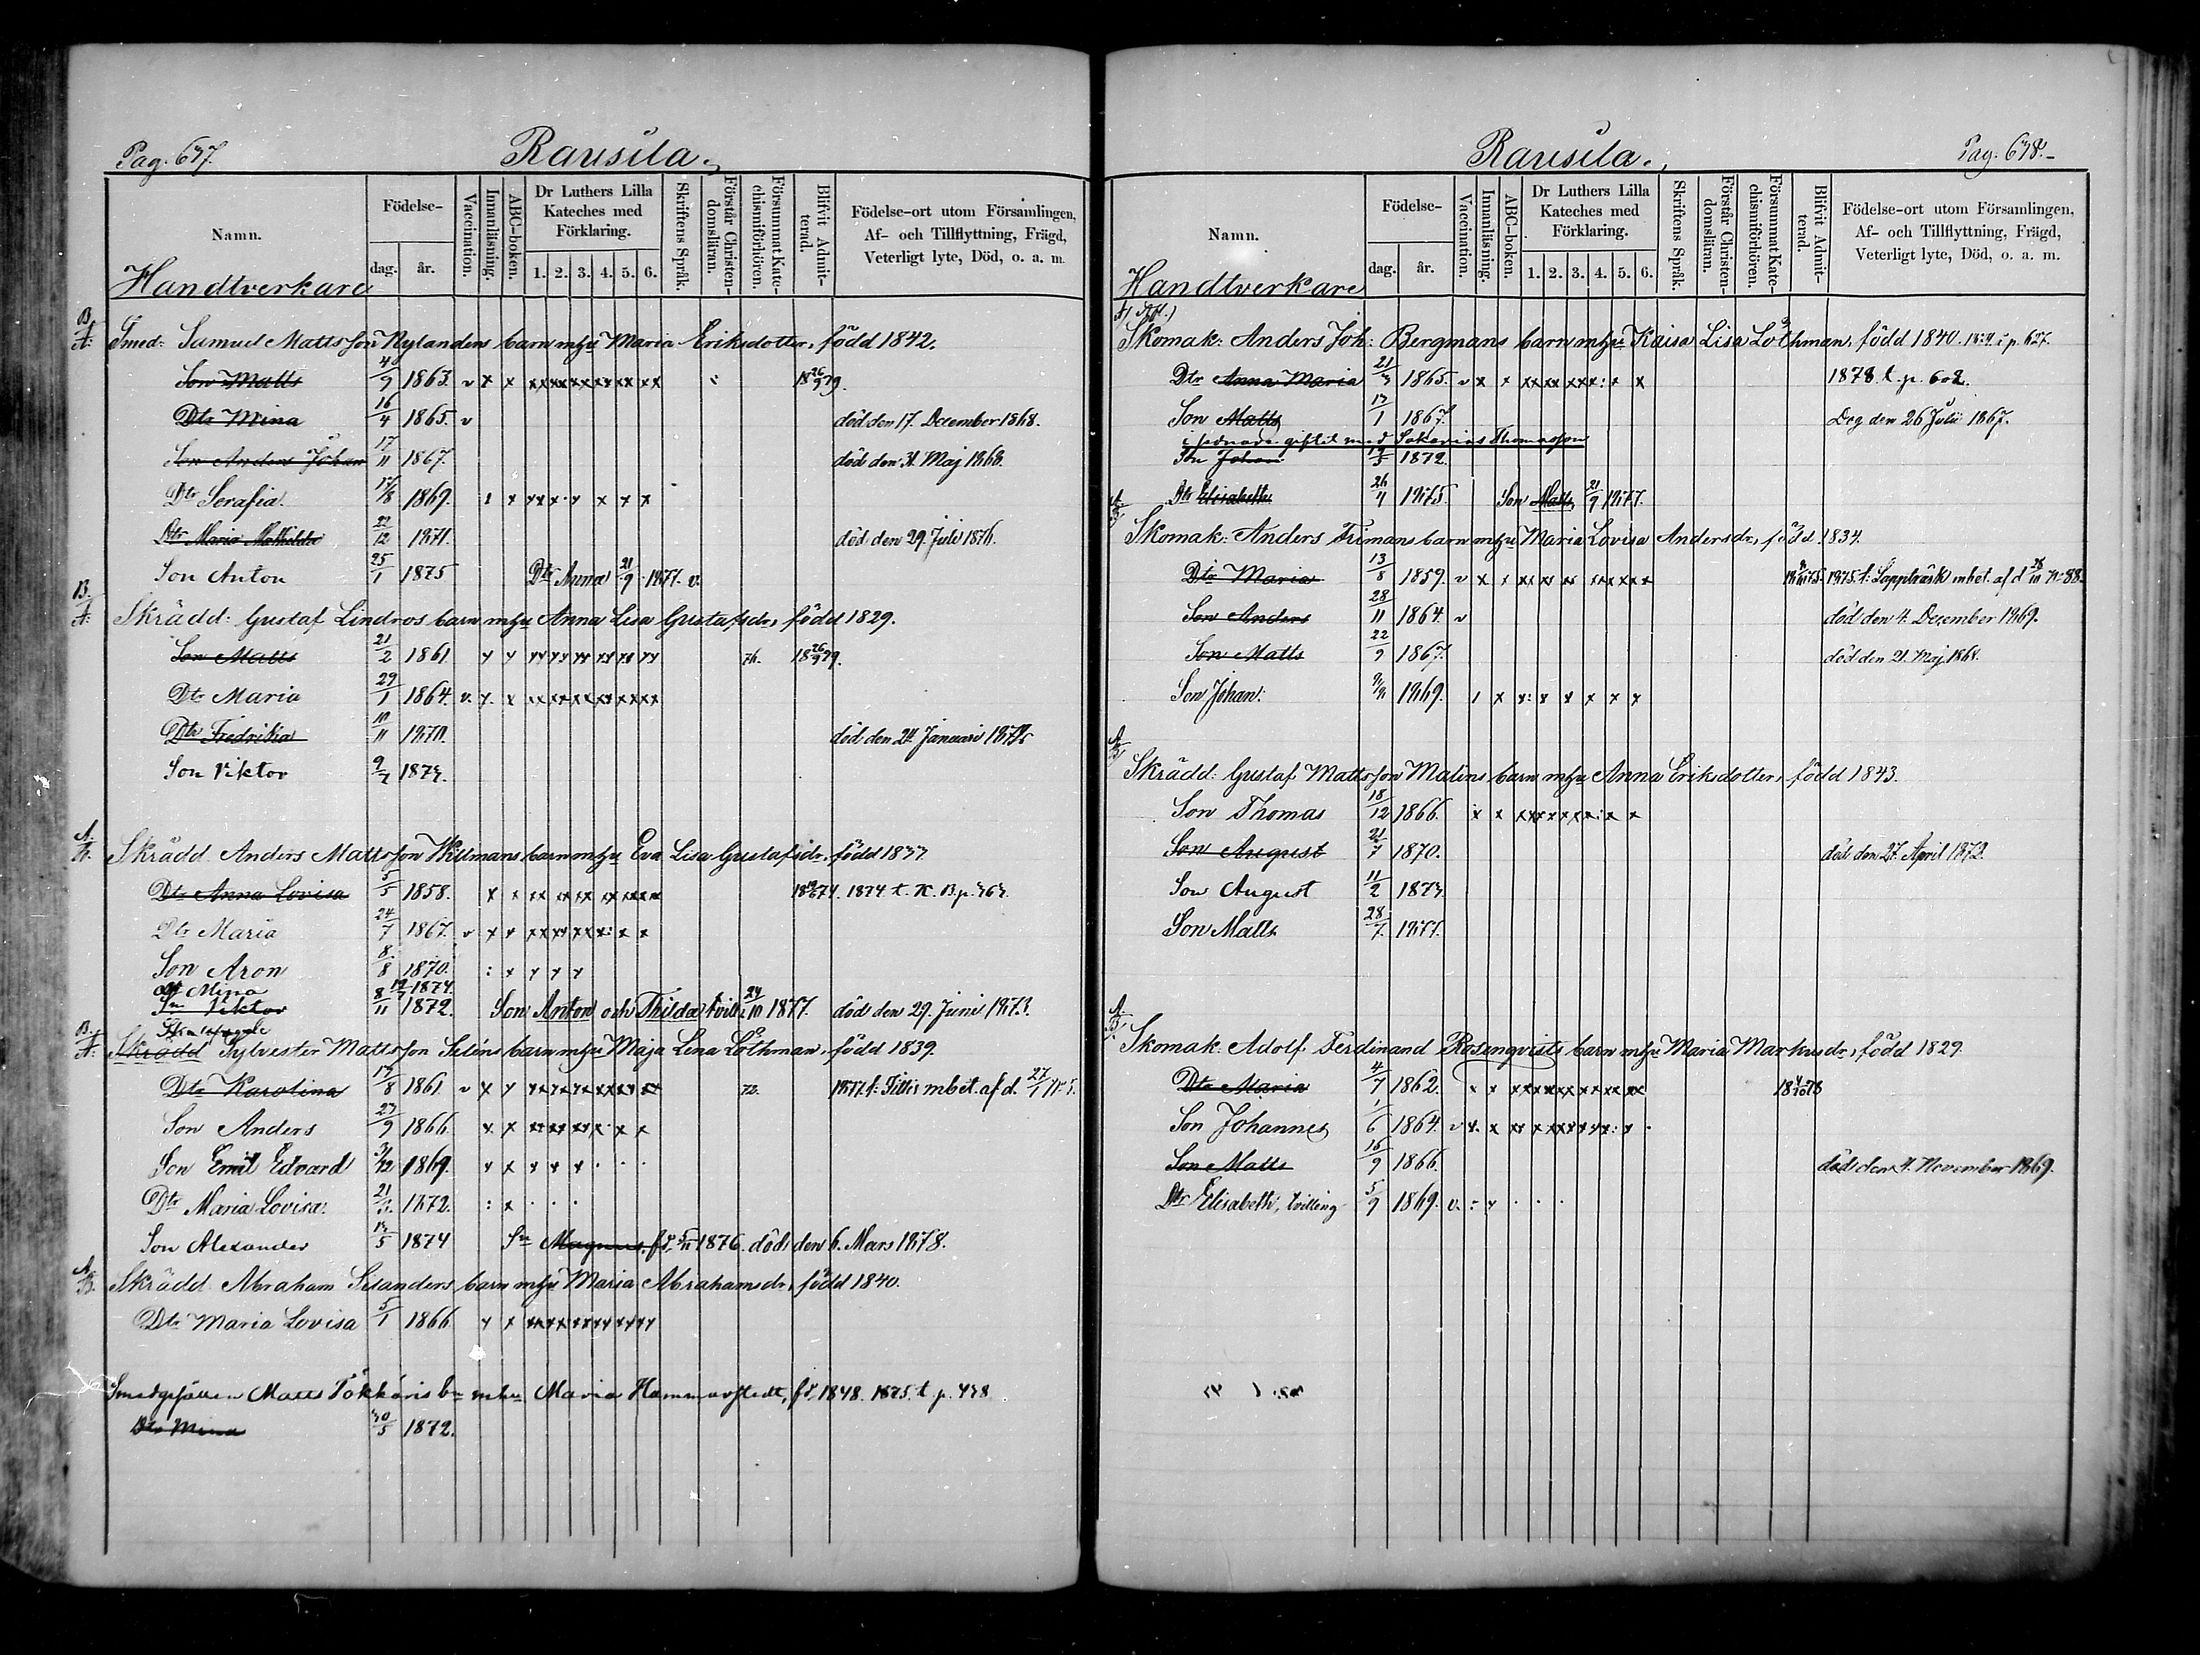 Pag. 637.
Rausila.
Namn.
Födelse-
dag.
år.
Vaccination.
Innanläsning.
ABC-boken.
Dr Luthers Lilla
Kateches med
Förklaring.
1. 2. 3. 4. 5. 6.
Skriftens Språk.
Förstår Christen-
domsläran.
Försummat Kate-
chismiförhören.
Blifvit Admit-
terad.
Födelse-ort utom Församlingen,
Af- och Tillflyttning, Frägd,
Veterligt lyte, Död, o. a. m.
Handtverkare
Smed: Samuel Mattsson Nylanders barn mhu Maria Eriksdotter, född 1842.
Son Matts 4/9 1863. v x x 18 26/9 79.
Dtr Mina 16/4 1865. v död den 17. December 1868.
Son Anders Johan 17/11 1867. död den 31. Maj 1868.
Dtr Serafia. 17/8 1869.
Dtr Maria Mathilda 22/12 1871. död den 29. Juli 1876.
Son Anton 25/1 1875 Dtr Anna 21/9 1877. v.
Skrädd: Gustaf Lindros barn mhu Anna Lisa Gustafsdr, född 1829.
Son Matts 21/2 1861 76. 18 26/9 79.
Dtr Maria 29/1 1864. v.
Dtr Fredrika 10/11 1870. död den 24. Januari
Son Viktor 9/7 1873.
Skrädd. Anders Mattsson Willmans barn mhu Eva Lisa Gustafsdr, född 1833.
Dtr Anna Lovisa 5/5 1858. 1874 t. K. B. p. 363.
Dtr Maria 24/7 1867. v
Son Aron 8/8 1870.
Dtr Mina 1874.
Sn Viktor 8/11 1872. Son Anton och Thilda tvill. 24/10 1877. död den 29. Juni 1873.
Skrädd Sylvester Mattsson Seléns barn mhu Maja Lena Löthman, född 1839.
Dtr Karolina 17/8 1861 v 72. 1877 t. Tillis m bet. af d. 27/1 N: 5.
Son Anders 23/9 1866.
Son Emil Edvard 3/12 1869.
Dtr Maria Lovisa. 21/3 1872.
Son Alexander 13/5 1874 Sn Magnus, fd. 5/11 1876. död den 6. Mars 1878.
Skrädd. Abraham Sisanders barn mhu Maria Abrahamsdr, född 1840.
Dtr Maria Lovisa 5/1 1866
Smedgesällen Matts Tökkäris bn mhu Maria Hammarstedt, fd. 1848. 1875. t p. 438
Dtr Mina 30/5 1872.
Pag. 638.
Rausila.
Namn.
Födelse-
dag.
år.
Vaccination.
Innanläsning.
ABC-boken.
Dr Luthers Lilla
Kateches med
Förklaring.
1. 2. 3. 4. 5. 6.
Skriftens Språk.
Förstår Christen-
domsläran.
Försummat Kate-
chismiförhören.
Blifvit Admit-
terad.
Födelse-ort utom Församlingen,
Af- och Tillflyttning, Frägd,
Veterligt lyte, Död, o. a. m.
Handtverkare
Skomak: Anders Joh: Bergmans barn mhu Kaisa Lisa Löthman, född 1840. i p. 627.
Dtr Anna Maria 21/3 1865. v 1878. t. p. 602.
Son Matts 13/1 1867. Deg den 26 Juli 1867.
i sednare giftet med Sakarias Thomasson
Sn Johan 1872.
Dtr Elisabeth 26/4 1875. Son Matts, 21/9 1877.
Skomak: Anders Frimans barn mhu Maria Lovisa Andersdr, född 1834.
Dtr Maria 13/8 1859. v 1875. t. Lappträsk m bet. af d 28/10 N: 88.
Son Anders 28/11 1864. v död den 4. December 1869.
Son Matts 22/9 1867. död den 21. Maj 1868.
Son Johan. 1869.
Skrädd: Gustaf Mattsson Malins barn mhu Anna Eriksdotter, född 1843.
Son Thomas 18/12 1866.
Son August 21/7 1870. död den 27. April 1872.
Son August 11/2 1873.
Son Matts 28/7 1877.
Skomak: Adolf Ferdinand Rosenqvists barn mhu Maria Markusdr, född 1829.
Dtr Maria 4/7 1862.
Son Johannes 1/6 1864. v
Son Matts 16/9 1866. död den 4. November 1869.
Dtr Elisabeth, tvilling 5/9 1869. v.